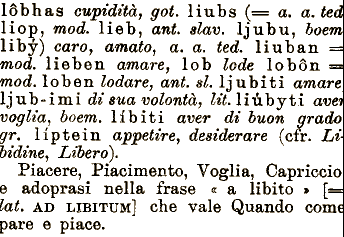 lôbhas cupidità, got. liubs (= a. a. ted
liop, mod. lieb, ant. slav. ljubu, boem
libý) caro, amato, a. a. ted. liuban =
mod. lieben amare, lob lode lobôn =
mod. loben lodare, ant. sl. ljubiti amare
ljub-imi di sua volontà, lit. liúbyti aver
voglia, boem. líbiti aver di buon grado
gr. líptein appetire, desiderare (cfr. Li-
bidine, Libero).
Piacere, Piacimento, Voglia, Capriccio
e adoprasi nella frase « a libito » [=
lat. AD LIBITUM] che vale Quando come
pare e piace.